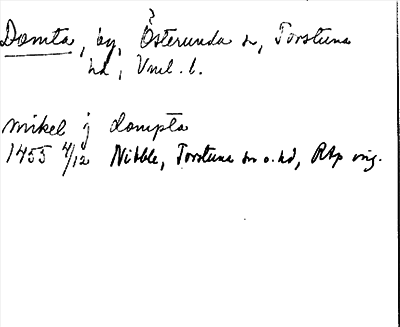 Domta, by, Österunda sn, Torstuna
hd, Vml. l.
mikel j dompta
1455 4/12 Nibble, Torstuna sn o. hd, RAp orig.